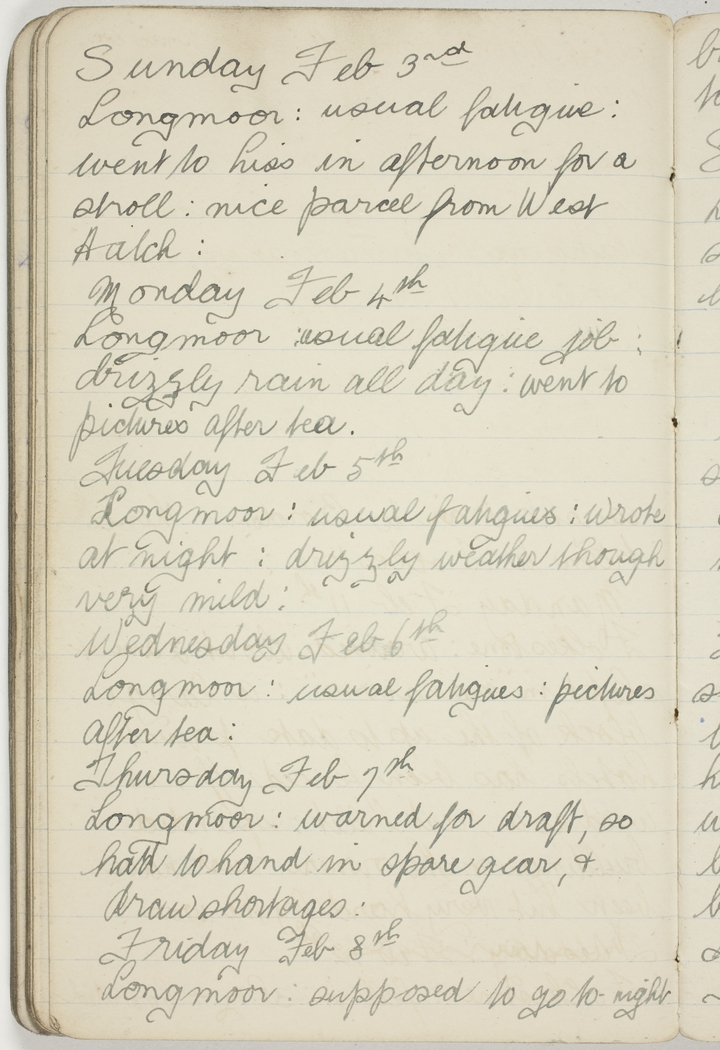 Sunday Feb 3rd
Longmoor: usual fatigue:
went to Liss in afternoon for a
stroll: nice parcel from West
Hatch:
Monday Feb 4th
Longmoor: usual fatigue job:
drizzly rain all day: went to
pictures after tea.
Tuesday Feb 5th
Longmoor: usual fatigues: wrote
at night: drizzly weather though
very mild:
Wednesday Feb 6th
Longmoor: usual fatigues: pictures
after tea:
Thursday Feb 7th
Longmoor: warned for draft, so
had to hand in spare gear, &
draw shortages:
Friday Feb 8th
Longmoor: supposed to go to-night